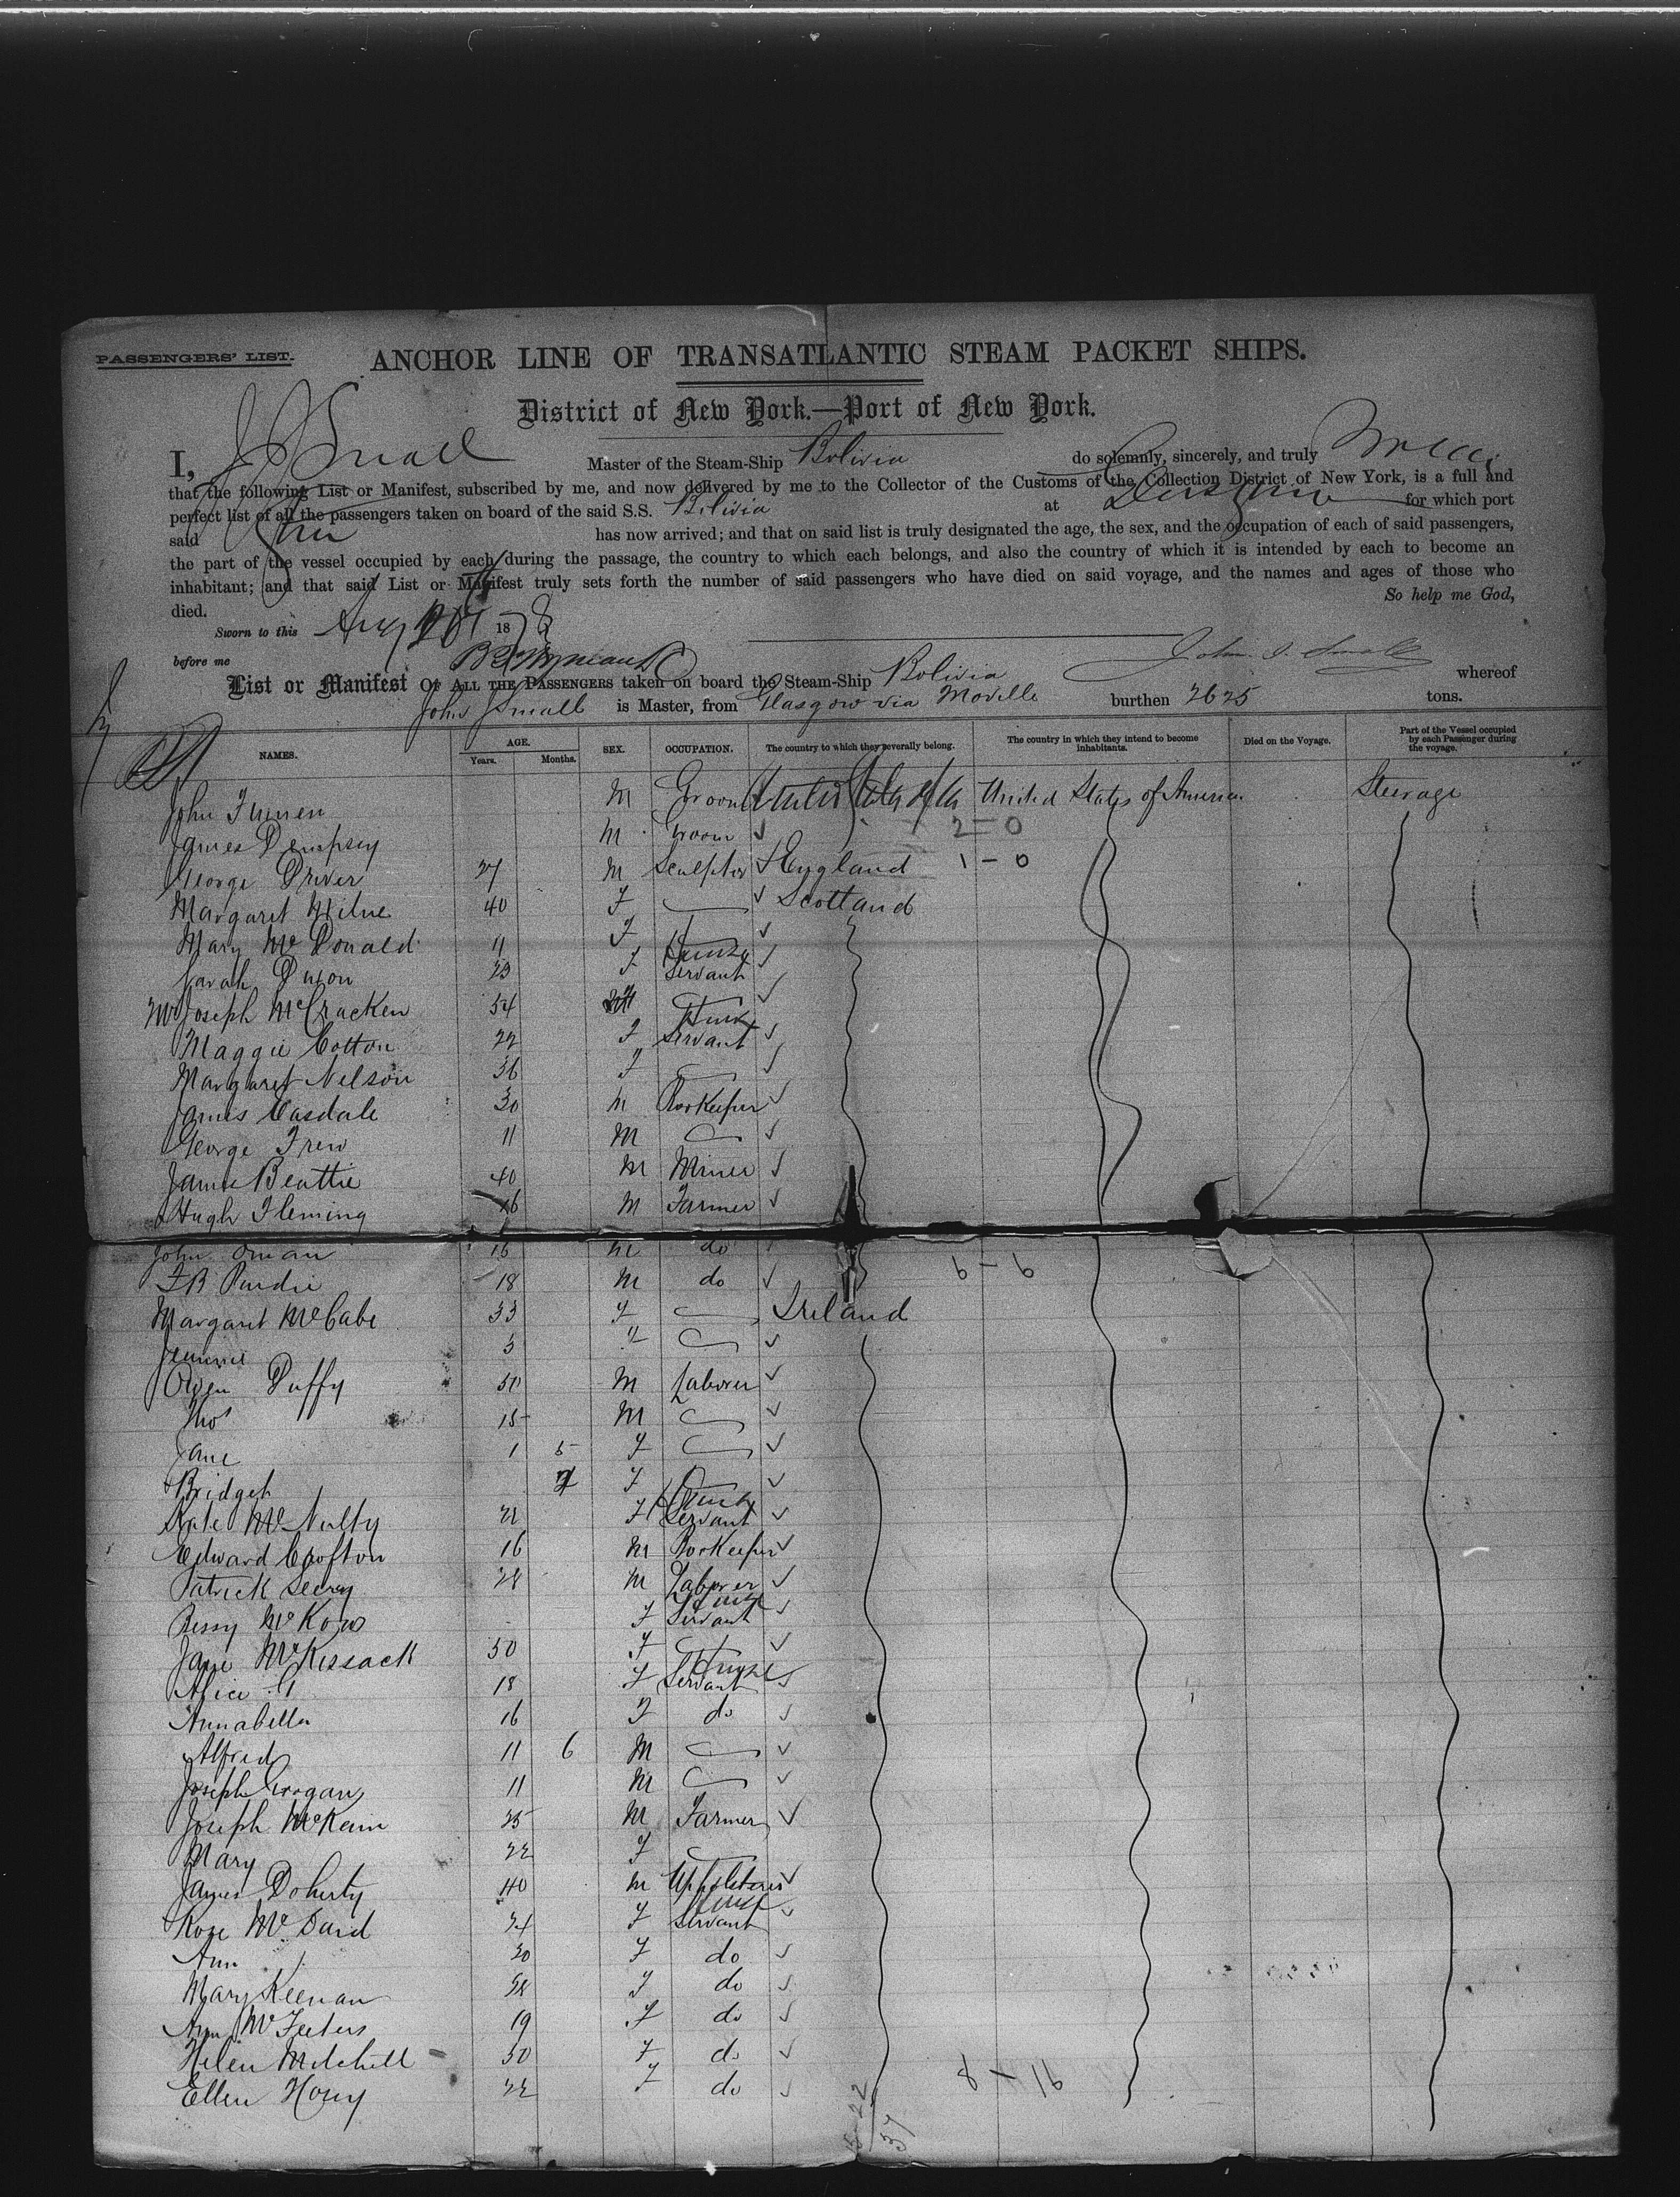 PASSENGERS' LIST.
ANCHOR LINE OF TRANSATLANTIC STEAM PACKET SHIPS.
District of New York.—Port of New York.
I, J J Small Master of the Steam-Ship Bolivia do solemnly, sincerely, and truly
that the following List or Manifest, subscribed by me, and now delivered by me to the Collector of the Customs of the Collection District of New York, is a full and
perfect list of all the passengers taken on board of the said S.S. Bolivia at for which port
said has now arrived; and that on said list is truly designated the age, the sex, and the occupation of each of said passengers,
the part of the vessel occupied by each during the passage, the country to which each belongs, and also the country of which it is intended by each to become an
inhabitant; and that said List or Manifest truly sets forth the number of said passengers who have died on said voyage, and the names and ages of those who
died. So help me God,
Sworn to this Aug 1878
before me John J. Small
List or Manifest OF ALL THE PASSENGERS taken on board the Steam-Ship Bolivia whereof
John J Small is Master, from Glasgow via Moville burthen 2625 tons.
NAMES. AGE. Years. Months. SEX. OCCUPATION. The country to which they severally belong. The country in which they intend to become inhabitants. Died on the Voyage. Part of the Vessel occupied by each Passenger during the voyage.
John M Groom United States of America Steerage
James Dempsey M Groom 2 - 0
George Driver 27 M Sculptor England 1 - 0
Margaret Milne 40 F Scotland
Mary McDonald 11 F
Sarah 23 F House Servant
Joseph McCracken 54
Maggie Cotton 22 F House Servant
Margaret Nelson 36 F
James Casdale 30 M Bookeeper
George Trew 11 M
James Beattie 40 M Miner
Hugh Fleming 16 M Farmer
John Oman 16 M do
J B Purdie 18 M do 6 - 6
Margaret McCabe 33 F Ireland
Jennie 3 F
Owen Duffy 50 M Laborer
Thos 15 M
Jane 1 5 F
Bridget F
Kate McNulty 21 F House Servant
Edward Crofton 16 M Bookeeper
Patrick 28 M Laborer
Bessy McKow F House Servant
Jane McKissack 50 F
Alice 18 F House Servant
Annabella 16 F do
Alfred 11 6 M
Joseph Grogan 11 M
Joseph McKeun 25 M Farmer
Mary 22 F
James Doherty 40 M Upholsterer
Rose McDaid 24 F House Servant
Ann 20 F do
Mary Keenan F do
Ann McFeeters 19 F do
Helen Mitchell 50 F do
Ellen 22 F do 8 - 16
37